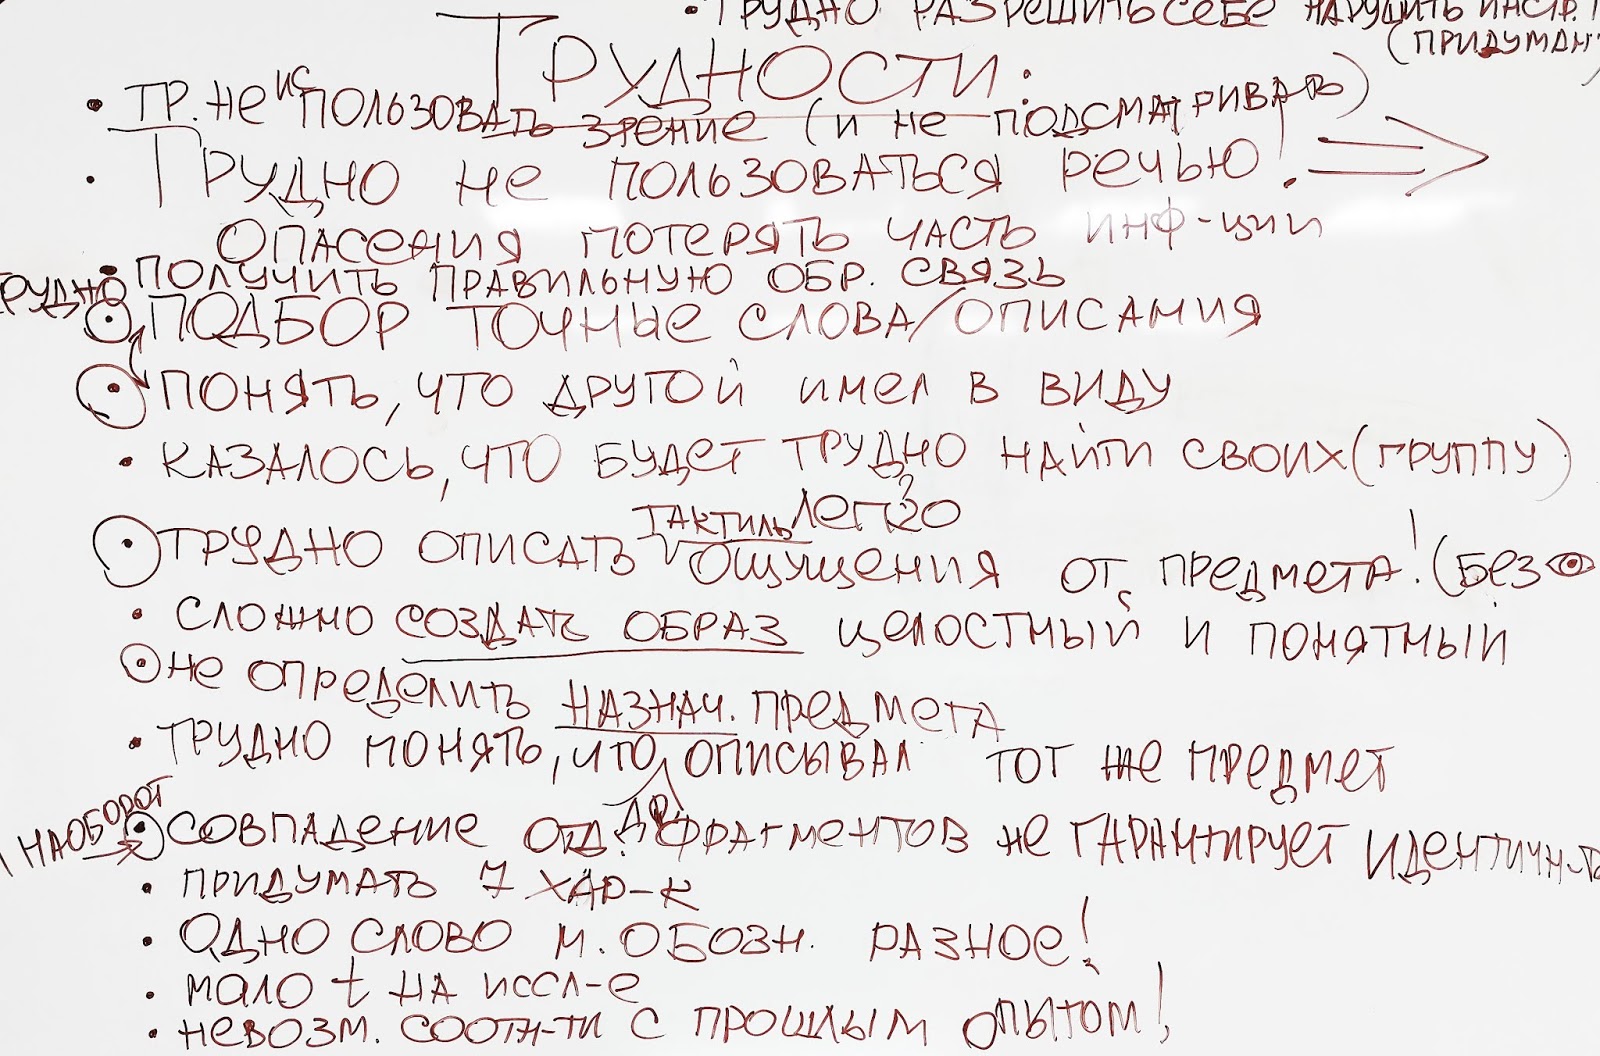 • ТРУДНО РАЗРЕШИТЬ СЕБЕ НАРУШИТЬ ИНСТР.
(ПРИДУМАН
ТРУДНОСТИ:
• ТР. НЕ ИСПОЛЬЗОВАТЬ ЗРЕНИЕ (И НЕ ПОДСМАТРИВАТЬ)
• ТРУДНО НЕ ПОЛЬЗОВАТЬСЯ РЕЧЬЮ!
ОПАСЕНИЯ ПОТЕРЯТЬ ЧАСТЬ ИНФ-ЦИИ
ТРУДНО • ПОЛУЧИТЬ ПРАВИЛЬНУЮ ОБР. СВЯЗЬ
• ПОДБОР ТОЧНЫЕ СЛОВА/ОПИСАНИЯ
• ПОНЯТЬ, ЧТО ДРУГОЙ ИМЕЛ В ВИДУ
• КАЗАЛОСЬ, ЧТО БУДЕТ ТРУДНО НАЙТИ СВОИХ (ГРУППУ)
ТАКТИЛЬ ЛЕГКО
?
• ТРУДНО ОПИСАТЬ ОЩУЩЕНИЯ ОТ ПРЕДМЕТА! (БЕЗ
• СЛОЖНО СОЗДАТЬ ОБРАЗ ЦЕЛОСТНЫЙ И ПОНЯТНЫЙ
• НЕ ОПРЕДЕЛИТЬ НАЗНАЧ. ПРЕДМЕТА
• ТРУДНО ПОНЯТЬ, ЧТО ДР. ОПИСЫВАЛ ТОТ ЖЕ ПРЕДМЕТ
НАОБОРОТ
• СОВПАДЕНИЕ ОТД. ФРАГМЕНТОВ НЕ ГАРАНТИРУЕТ ИДЕНТИЧН-ТЬ
• ПРИДУМАТЬ 7 ХАР-К
• ОДНО СЛОВО М. ОБОЗН. РАЗНОЕ!
• МАЛО t НА ИССЛ-Е
• НЕВОЗМ. СООТН-ТИ С ПРОШЛЫМ ОПЫТОМ!